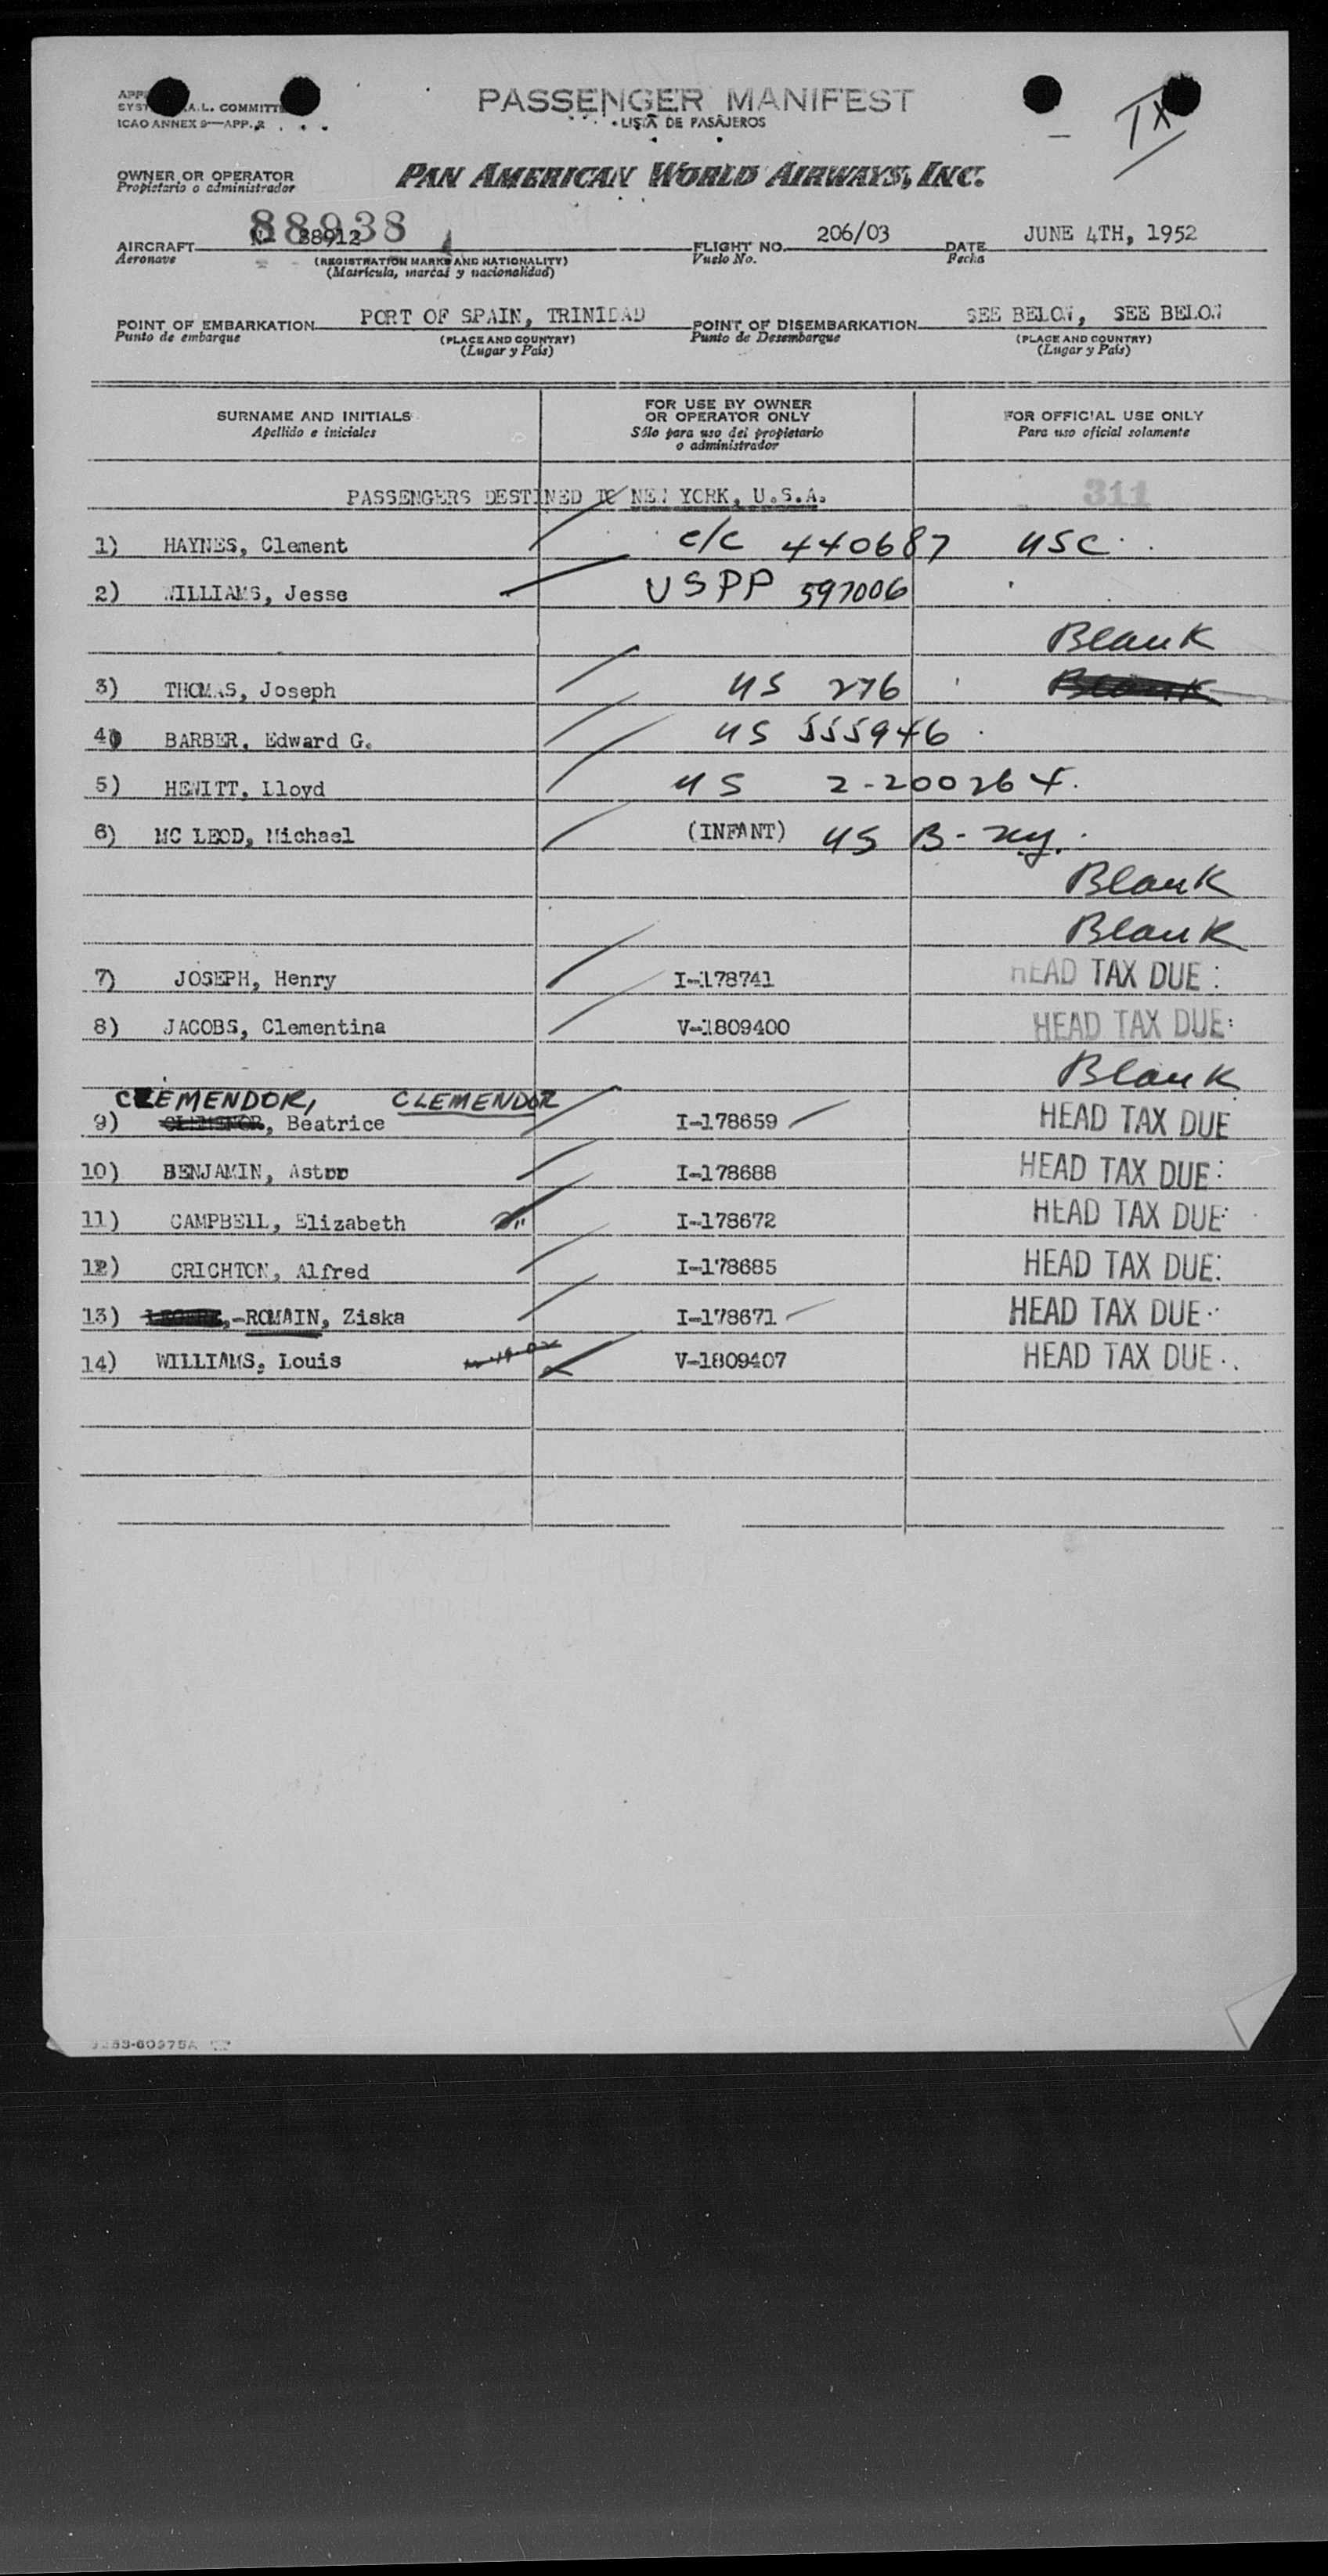 PASSENGER MANIFEST
LISTA DE PASAJEROS
A.L. COMMITT
ICAO ANNEX 9—APP. 2
TX
OWNER OR OPERATOR
Propietario o administrador
PAN AMERICAN WORLD AIRWAYS, INC.
88938
AIRCRAFT N- 88912 FLIGHT NO. 206/03 DATE JUNE 4TH, 1952
Aeronave (REGISTRATION MARKS AND NATIONALITY) Vuelo No. Fecha
(Matrícula, marcas y nacionalidad)
POINT OF EMBARKATION PORT OF SPAIN, TRINIDAD POINT OF DISEMBARKATION SEE BELOW, SEE BELOW
Punto de embarque (PLACE AND COUNTRY) Punto de Desembarque (PLACE AND COUNTRY)
(Lugar y País) (Lugar y País)
SURNAME AND INITIALS FOR USE BY OWNER OR OPERATOR ONLY FOR OFFICIAL USE ONLY
Apellido e iniciales Sólo para uso del propietario o administrador Para uso oficial solamente
PASSENGERS DESTINED TO NEW YORK, U.S.A. 311
1) HAYNES, Clement c/c 440687 USC
2) WILLIAMS, Jesse USPP 597006
Blank
3) THOMAS, Joseph US 276 Blank
4) BARBER, Edward G. US 555946
5) HEWITT, Lloyd US 2-200264
6) MC LEOD, Michael (INFANT) US B- ny.
Blank
Blank
7) JOSEPH, Henry I-178741 HEAD TAX DUE:
8) JACOBS, Clementina V-1809400 HEAD TAX DUE:
Blank
CLEMENDOR, CLEMENDOR
9) , Beatrice I-178659 HEAD TAX DUE
10) BENJAMIN, Astor I-178688 HEAD TAX DUE:
11) CAMPBELL, Elizabeth I-178672 HEAD TAX DUE:
12) CRICHTON, Alfred I-178685 HEAD TAX DUE:
13) ,-ROMAIN, Ziska I-178671 HEAD TAX DUE
14) WILLIAMS, Louis V-1809407 HEAD TAX DUE